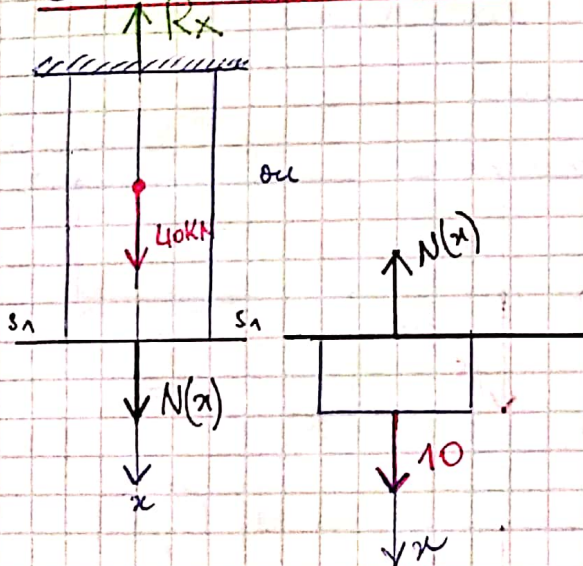 Rx
40KN
ou
N(x)
S1 S1
N(x)
10
x
x